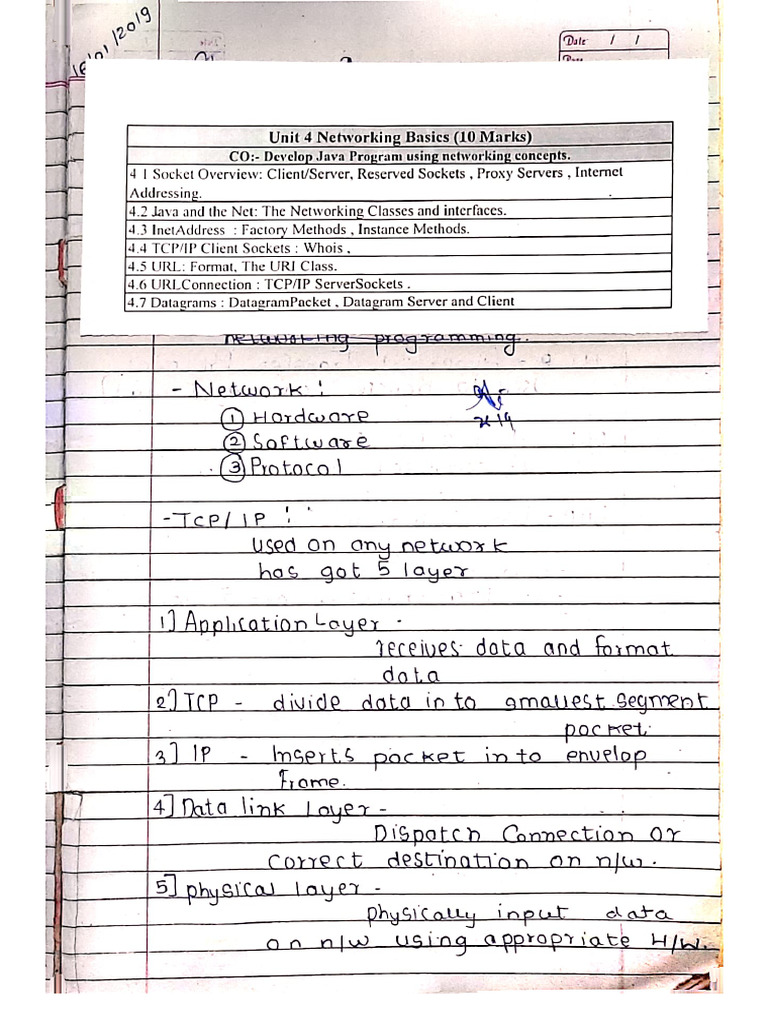 16/01/2019
Date / /
Unit 4 Networking Basics (10 Marks)
CO:- Develop Java Program using networking concepts.
4 1 Socket Overview: Client/Server, Reserved Sockets , Proxy Servers , Internet
Addressing.
4.2 Java and the Net: The Networking Classes and interfaces.
4.3 InetAddress : Factory Methods , Instance Methods.
4.4 TCP/IP Client Sockets : Whois ,
4.5 URL: Format, The URI Class.
4.6 URLConnection : TCP/IP ServerSockets .
4.7 Datagrams : DatagramPacket , Datagram Server and Client
networking programming.
- Network :
① Hardware
② Software
③ Protocol
- TCP/IP :
used on any network
has got 5 layer
1] Application Layer -
receives data and format
data
2] TCP - divide data in to smallest segment
packet.
3] IP - Inserts packet in to envelop
frame.
4] Data link Layer -
Dispatch Connection or
correct destination on n/w.
5] physical layer -
physically input data
on n/w using appropriate H/W.